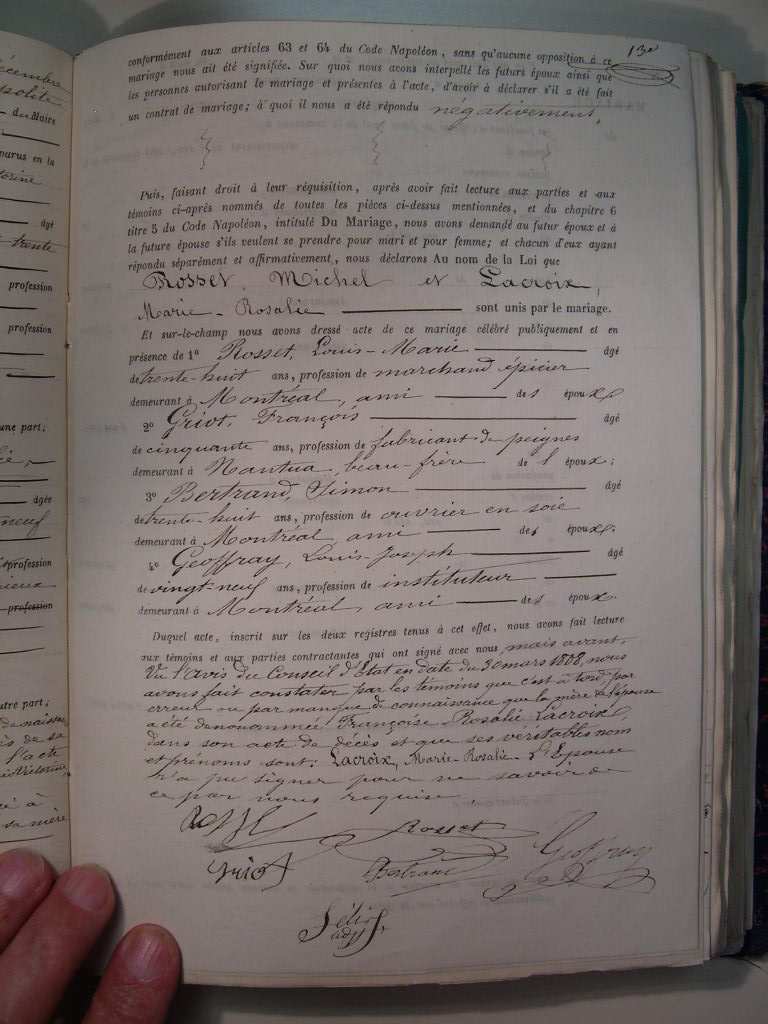 écembre
polite
du Maire
parus en la
torine
âgé
trente
profession
profession
une part;
âgée
neuf
profession
ieux
profession
utre part;
de naissa
ès de sa
l'acte
Victorine,
é à
sa mère
13e
conformément aux articles 63 et 64 du Code Napoléon, sans qu'aucune opposition à ce
mariage nous ait été signifiée. Sur quoi nous avons interpellé les futurs époux ainsi que
les personnes autorisant le mariage et présentes à l'acte, d'avoir à déclarer s'il a été fait
un contrat de mariage; à quoi il nous a été répondu négativement,
Puis, faisant droit à leur réquisition, après avoir fait lecture aux parties et aux
témoins ci-après nommés de toutes les pièces ci-dessus mentionnées, et du chapitre 6
titre 5 du Code Napoléon, intitulé Du Mariage, nous avons demandé au futur époux et à
la future épouse s'ils veulent se prendre pour mari et pour femme; et chacun d'eux ayant
répondu séparément et affirmativement, nous déclarons Au nom de la Loi que
Rosset, Michel et Lacroix,
Marie-Rosalie sont unis par le mariage.
Et sur-le-champ nous avons dressé acte de ce mariage célébré publiquement et en
présence de 1° Rosset, Louis-Marie âgé
de trente-huit ans, profession de marchand épicier
demeurant à Montréal, ami des époux;
2° Griot, François âgé
de cinquante ans, profession de fabricant de peignes
demeurant à Nantua, beau-frère de l'époux;
3° Bertrand, Simon âgé
de trente-huit ans, profession de ouvrier en soie
demeurant à Montréal, ami des époux;
4° Geoffray, Louis-Joseph âgé
de vingt-neuf ans, profession de instituteur
demeurant à Montréal, ami des époux.
Duquel acte, inscrit sur les deux registres tenus à cet effet, nous avons fait lecture
aux témoins et aux parties contractantes qui ont signé avec nous, mais avant,
Vu l'avis du Conseil d'Etat en date du 30 mars 1808, nous
avons fait constater par les témoins que c'est à tord, par
erreur ou par manque de connaissance que la mère de l'épouse
a été dénommée Françoise-Rosalie Lacroix,
dans son acte de décès et que ses véritables nom
et prénoms sont: Lacroix, Marie-Rosalie. L'Epouse
n'a pu signer pour ne savoir de
ce par nous requise
Rosset Rosset Geoffray
Griot Bertrand